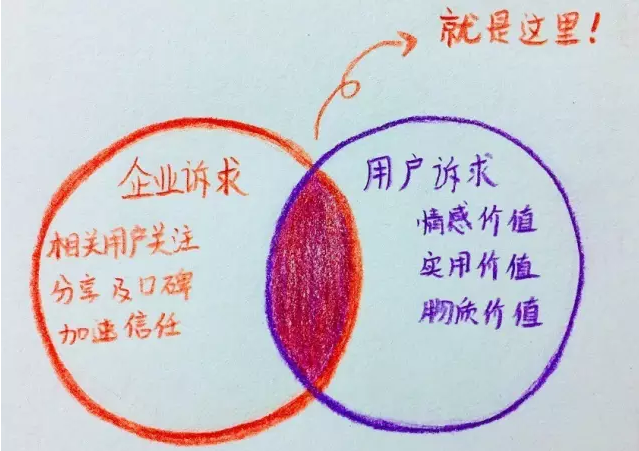 就是这里！
企业诉求
相关用户关注
分享及口碑
加速信任
用户诉求
情感价值
实用价值
物质价值